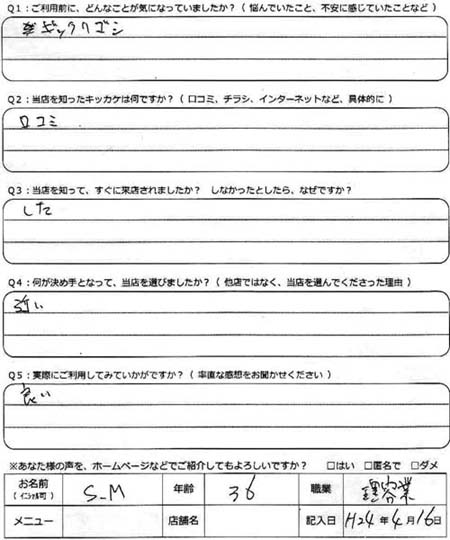 Q1：ご利用前に、どんなことが気になっていましたか？（ 悩んでいたこと、不安に感じていたことなど ）
ギックリゴシ
Q2：当店を知ったキッカケは何ですか？（ 口コミ、チラシ、インターネットなど、具体的に ）
口コミ
Q3：当店を知って、すぐに来店されましたか？ しなかったとしたら、なぜですか？
した
Q4：何が決め手となって、当店を選びましたか？（ 他店ではなく、当店を選んでくださった理由 ）
近い
Q5：実際にご利用してみていかがですか？（ 率直な感想をお聞かせください ）
良い
※あなた様の声を、ホームページなどでご紹介してもよろしいですか？ □はい □匿名で □ダメ
お名前 （ｲﾆｼｬﾙ可） S-M 年齢 36 職業 理容業
メニュー 店舗名 記入日 H24年4月16日